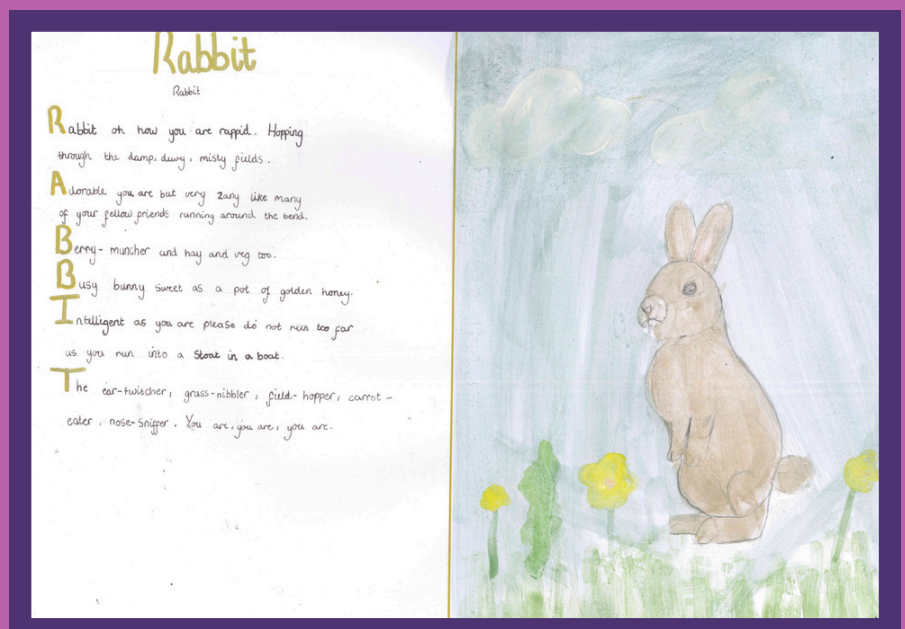 Rabbit
Rabbit
Rabbit oh how you are rappid. Hopping
through the damp, dewy, misty fields.
Adorable you are but very zany like many
of your fellow friends running around the bend.
Berry-muncher and hay and veg too.
Busy bunny sweet as a pot of golden honey.
Intelligent as you are please do not run too far
as you run into a Stoat in a boat.
The ear-twitcher, grass-nibbler, field-hopper, carrot-
eater, nose-sniffer. You are, you are, you are.